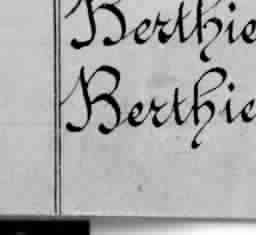 Berthie
Berthie